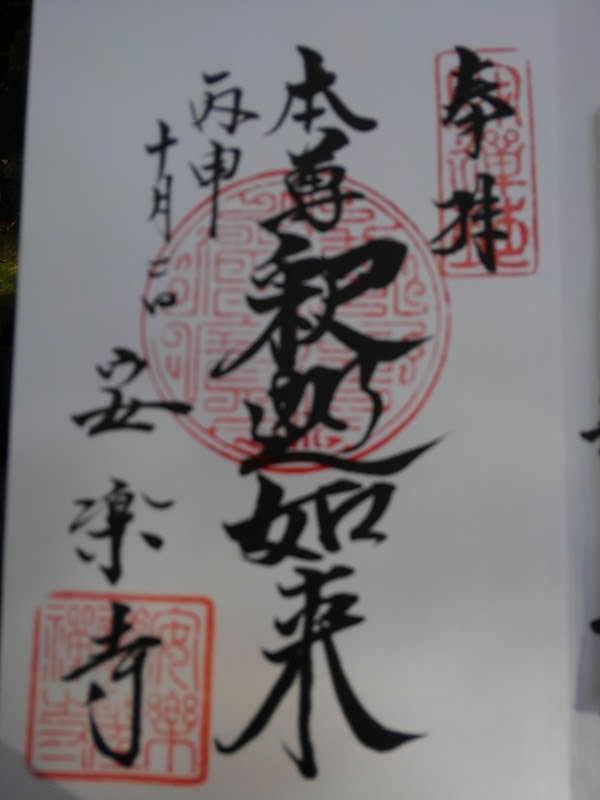 奉拝
本尊
釈迦如来
丙申
十月二日
安楽寺